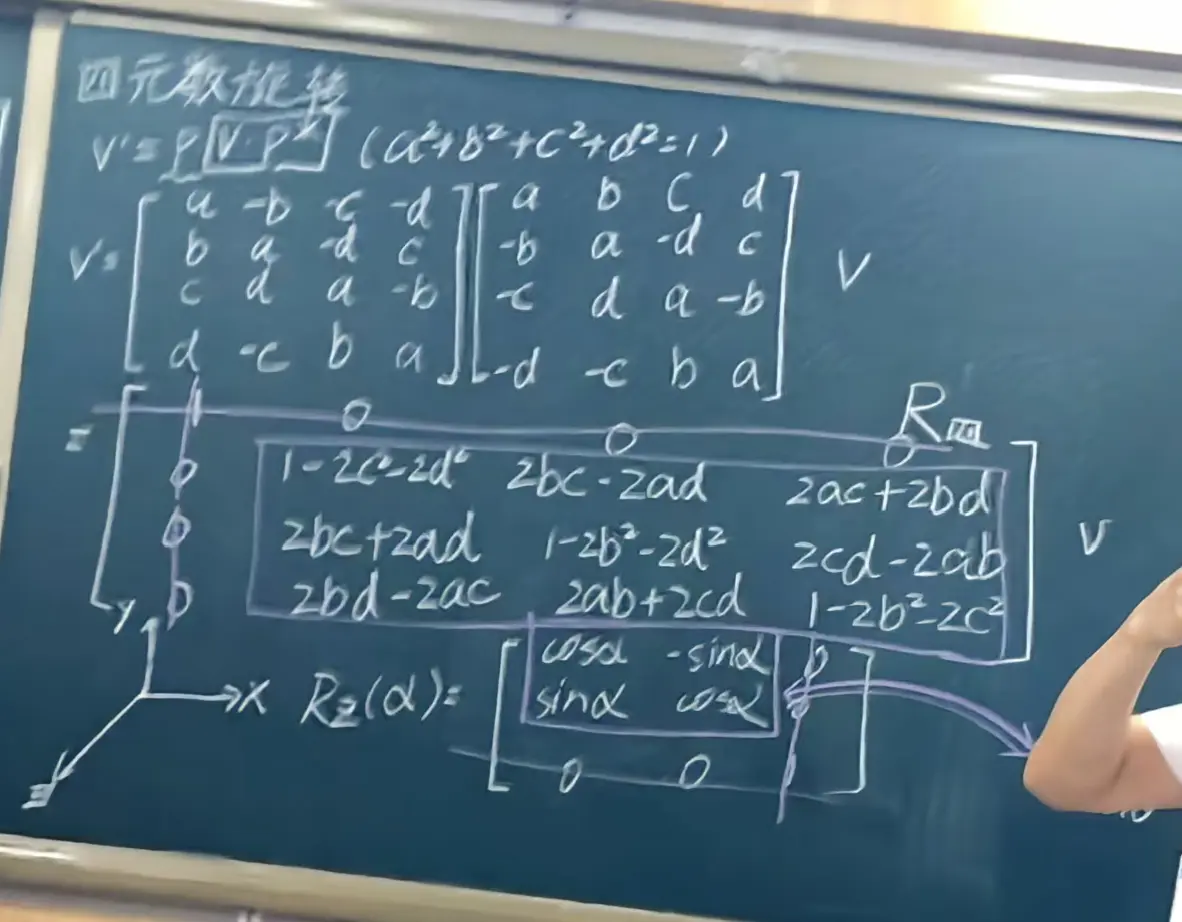 四元数旋转
V'=P[V·P*] (a²+b²+c²+d²=1)
V'= [ a -b -c -d ] [ a b c d ]
[ b a -d c ] [ -b a -d c ] V
[ c d a -b ] [ -c d a -b ]
[ d -c b a ] [ -d -c b a ]
R四
= [ 1 0 0 0 ]
[ 0 1-2c²-2d² 2bc-2ad 2ac+2bd ]
[ 0 2bc+2ad 1-2b²-2d² 2cd-2ab ] V
[ 0 2bd-2ac 2ab+2cd 1-2b²-2c² ]
Y
X
Z
Rz(α)= [ cosα -sinα 0 ]
[ sinα cosα 0 ]
[ 0 0 1 ]